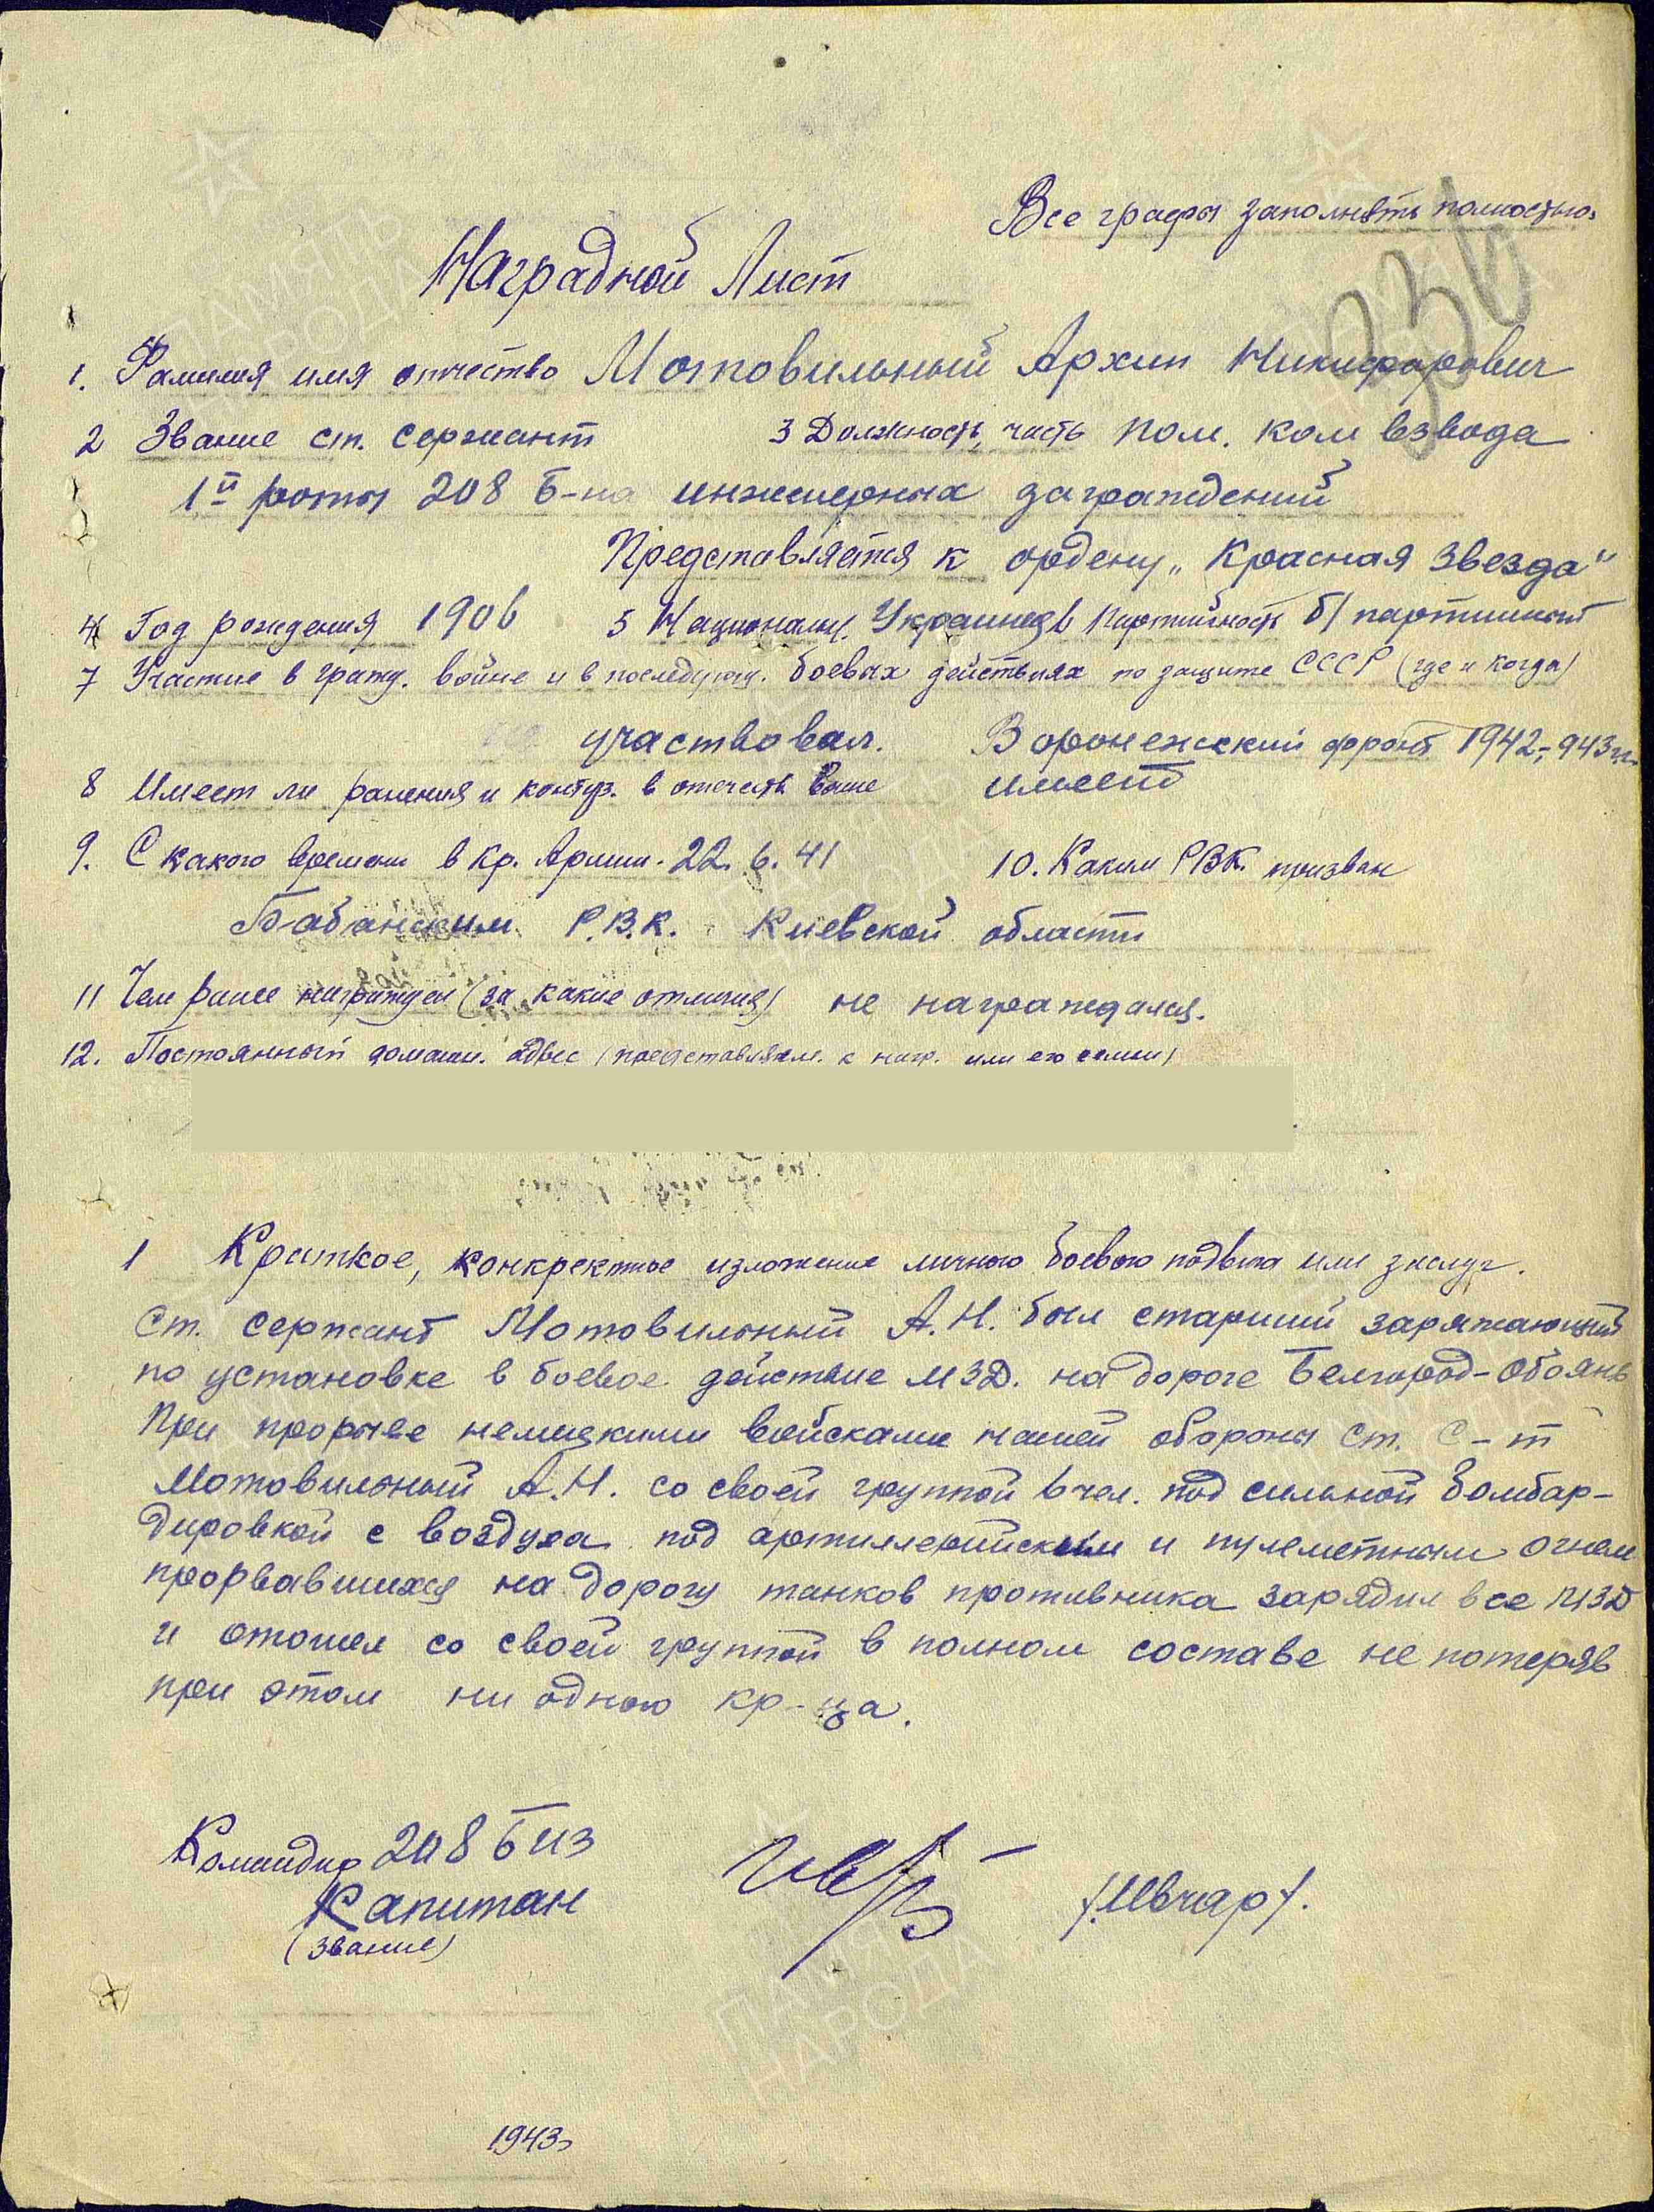 Все графы заполнять полностью.
Наградной Лист
1. Фамилия имя отчество Мотовильный Архип Никифорович
2 Звание ст. сержант 3 Должность, часть пом. ком взвода
1й роты 208 б-на инженерных заграждений
Представляется к ордену „Красная Звезда"
4 Год рождения 1906 5 Национальн. Украинец 6 Партийность б/партийный
7 Участие в гражд. войне и в последующ. боевых действиях по защите СССР (где и когда)
участвовал. Воронежский фронт 1942-943гг.
8 Имеет ли ранения и контуз. в отечеств. войне имеет
9. С какого времени в Кр. Армии. 22.6.41 10. Каким РВК. призван
Бабанским Р.В.К. Киевской области
11 Чем ранее награжден (за какие отличия) не награждался.
12. Постоянный домашн. адрес (представляем. к нагр. или его семьи)
1 Краткое, конкретное изложение личного боевого подвига или заслуг.
Ст. сержант Мотовильный А.Н. был старший заряжающий
по установке в боевое действие МЗД. на дороге Белгород-Обоянь
При прорыве немецкими войсками нашей обороны ст. с-т
Мотовильный А.Н. со своей группой 6 чел. под сильной бомбар-
дировкой с воздуха под артиллерийским и пулеметным огнем
прорвавшихся на дорогу танков противника зарядил все МЗД
и отошел со своей группой в полном составе не потеряв
при этом ни одного кр-ца.
Командир 208 БИЗ
Капитан /Ивчар/.
(звание)
1943г
ПАМЯТЬ НАРОДА